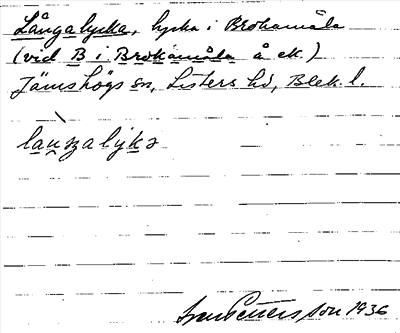 Långalycka, lycka i Brokamåla
(vid B i Brokamåla å ek.)
Jämshögs sn, Listers hd, Blek. l.
1936